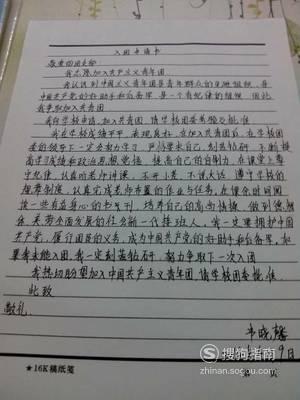 入团申请书
敬爱的团支部:
我志愿加入共产主义青年团
我认识到中国共产主义青年团是青年群众的先进组织,是
中国共产党的好助手和后备军,是一个有纪律的组织,因此
我争取加入共青团
我向学校申请,加入共青团,请学校团委考验并批准
我在学校成绩平平,表现良好,在加入共青团后,在学校团
委的领导下一定要努力学习,严格要求自己,刻苦钻研,不断提
高学习成绩和政治思想觉悟,提高自己的自制力,在课堂上遵
守纪律,认真听老师讲课,不开小差,不讲大话,遵守学校的
规章制度,认真完成老师布置的作业与任务,在课余时间阅
读一些有益身心的书报刊,培养自己的高尚情操,做到德智
体美劳全面发展的社会新一代接班人,我一定要拥护中国
共产党,履行团员的义务,成为中国共产党的好助手和后备军,如
果我未能入团,我一定刻苦钻研,努力争取下一次入团
我热切盼望加入中国共产主义青年团,请学校团委批准
此致
敬礼
韦晓馨
9日
★16K稿纸笺
第 页
搜狗指南
zhinan.sogou.com